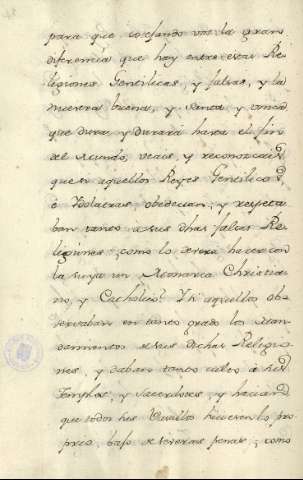 para que cotejando vos la gran
diferencia que hay entre estas Re-
ligiones Gentilicas, y falsas, y la
nuestra buena, y Santa y unica
que dura, y durará hasta el fin
del Mundo, veais, y reconozcais
que si aquellos Reyes Gentiles
è Idolatras obedecian, y respeta
ban tanto a sus dhas falsas Re-
ligiones, como lo deverá hacer con
la suya un Monarca Christia
no, y Catholico? Y si aquellos ob-
servaban en tanto grado los Man-
damientos de sus dichas Religio
nes, y daban tanto culto à sus
Templos, y Sacerdotes, y hacian
que todos sus Vasallos hiciesen lo pro
prio, bajo de severas penas, como